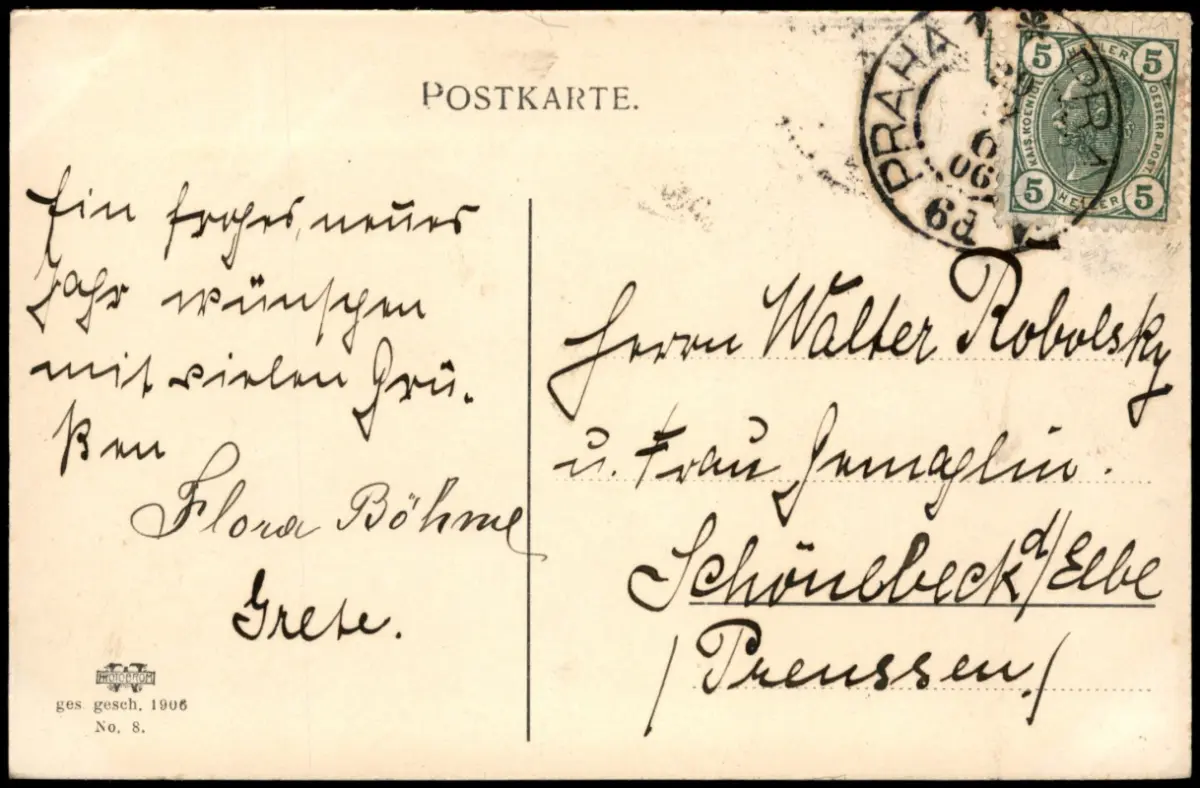 POSTKARTE.
PRAHA 1
6
06
6a
5 HELLER 5
KAIS. KOENIGL. OESTERR. POST
5 HELLER 5
Ein frohes, neues
Jahr wünschen
mit vielen Grü-
ßen
Flora Böhme
Grete.
Herrn Walter Robolsky
u. Frau Gemahlin.
Schönebeck d/Elbe
/Preussen./
ges. gesch. 1906
No. 8.